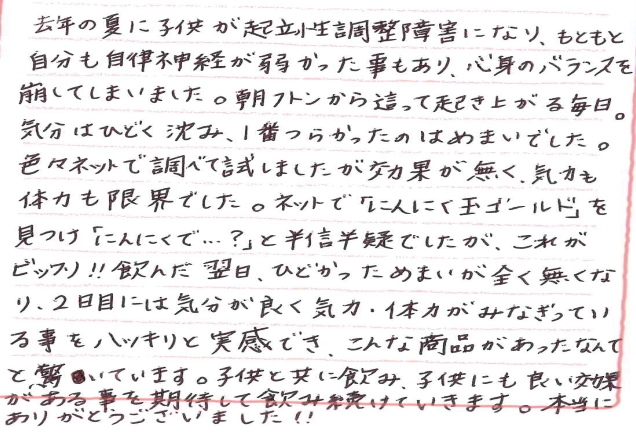 去年の夏に子供が起立性調整障害になり、もともと
自分も自律神経が弱かった事もあり、心身のバランスを
崩してしまいました。朝フトンから這って起き上がる毎日。
気分はひどく沈み、1番つらかったのはめまいでした。
色々ネットで調べて試しましたが効果が無く、気力も
体力も限界でした。ネットで「にんにく玉ゴールド」を
見つけ「にんにくで…?」と半信半疑でしたが、これが
ビックリ!!飲んだ翌日、ひどかっためまいが全く無くな
り、2日目には気分が良く気力・体力がみなぎってい
る事をハッキリと実感でき、こんな商品があったなんて
と驚いています。子供と共に飲み、子供にも良い効果
がある事を期待して飲み続けていきます。本当に
ありがとうございました!!